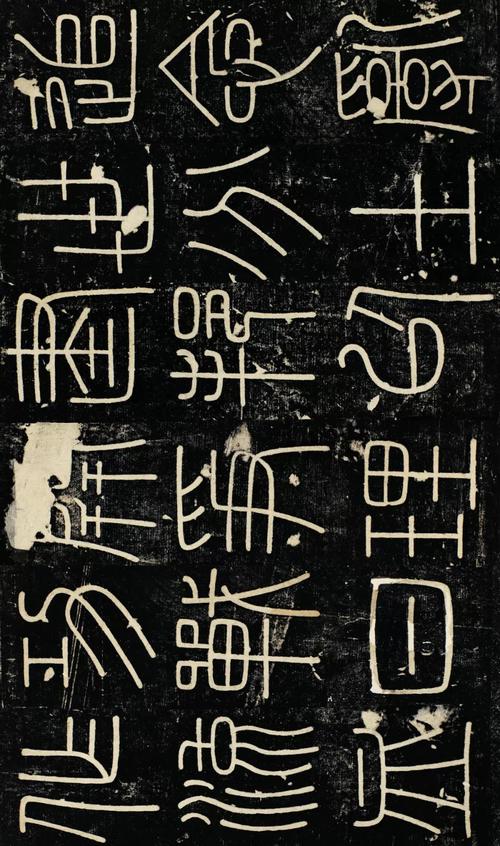 追念亂
世分土
建邦以
開爭理
功戰日
作流血